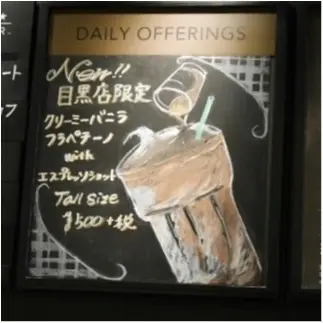 DAILY OFFERINGS
New!!
目黒店限定
クリーミーバニラ
フラペチーノ
with
エスプレッソショット
Tall size
¥500+税